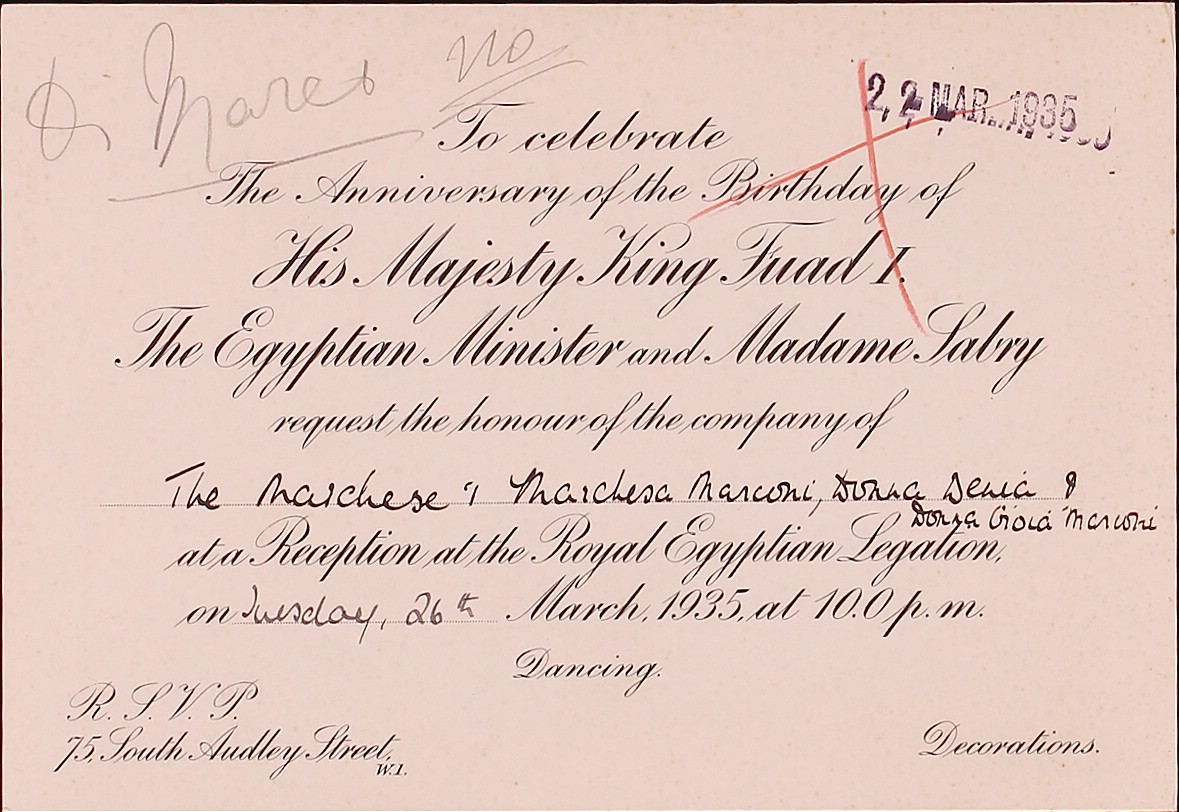 no
22 MAR. 1935
To celebrate
The Anniversary of the Birthday of
His Majesty King Fuad I.
The Egyptian Minister and Madame Sabry
request the honour of the company of
The Marchese & Marchesa Marconi, Donna Denia &
Donna Gioia Marconi
at a Reception at the Royal Egyptian Legation,
on Tuesday, 26th March, 1935, at 10.0 p.m.
Dancing.
R. S. V. P.
75, South Audley Street,
W.1.
Decorations.